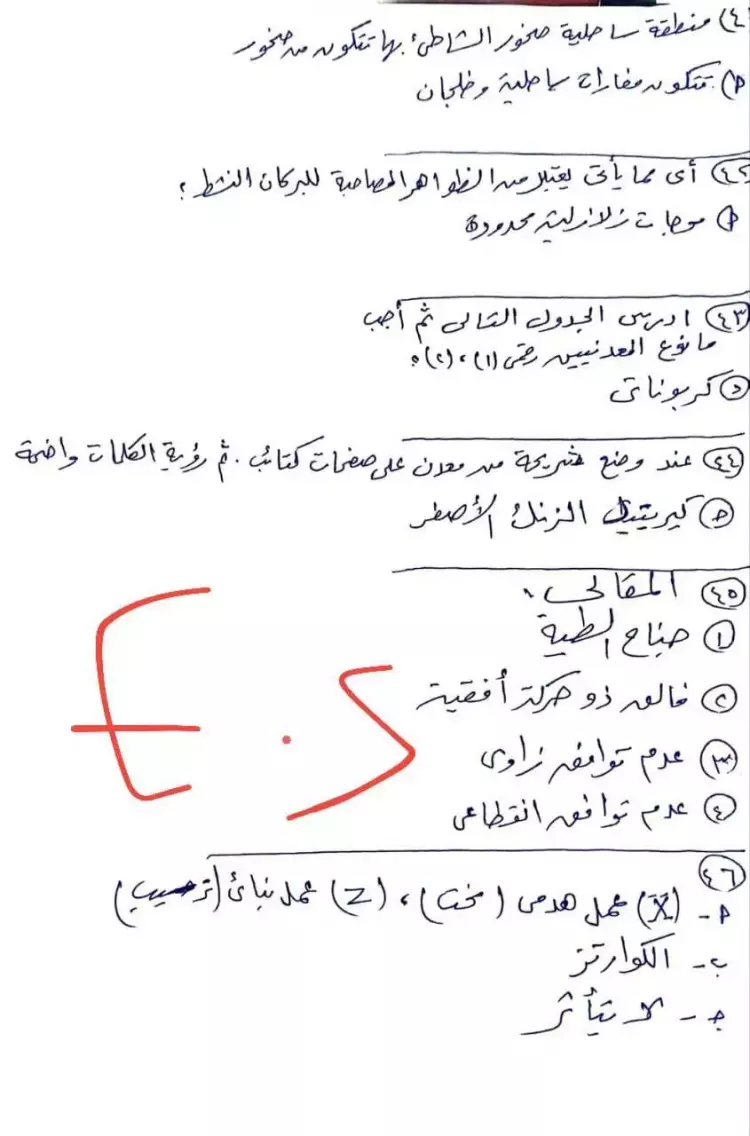 ٤١) منطقة ساحلية صخور الشاطئ بها تتكون من صخور
P) تتكون مغارات ساحلية وخلجان
٤٢) أى مما يأتى يعتبر من الظواهر المصاحبة للبركان النشط؟
P) موجات زلزالية محدودة
٤٣) ادرس الجدول التالى ثم أجب
ما نوع المعدنيين رقمى (١) ، (٢) ؟
د) كربوناتى
٤٤) عند وضع شريحة من معدن على صفحات كتاب . ثم رؤية الكلمات واضحة
كبريتيد الزنك الأصفر
٤٥) المقالى :
١) جناح الطية
٢) فالق ذو حركة أفقية
٣) عدم توافق زاوى
٤) عدم توافق انقطاعى
E.S
٤٦)
P- (X) عمل هدمى (نحت) ، (Z) عمل بنائى (ترسيب)
ب- الكوارتز
ج- لا يتأثر